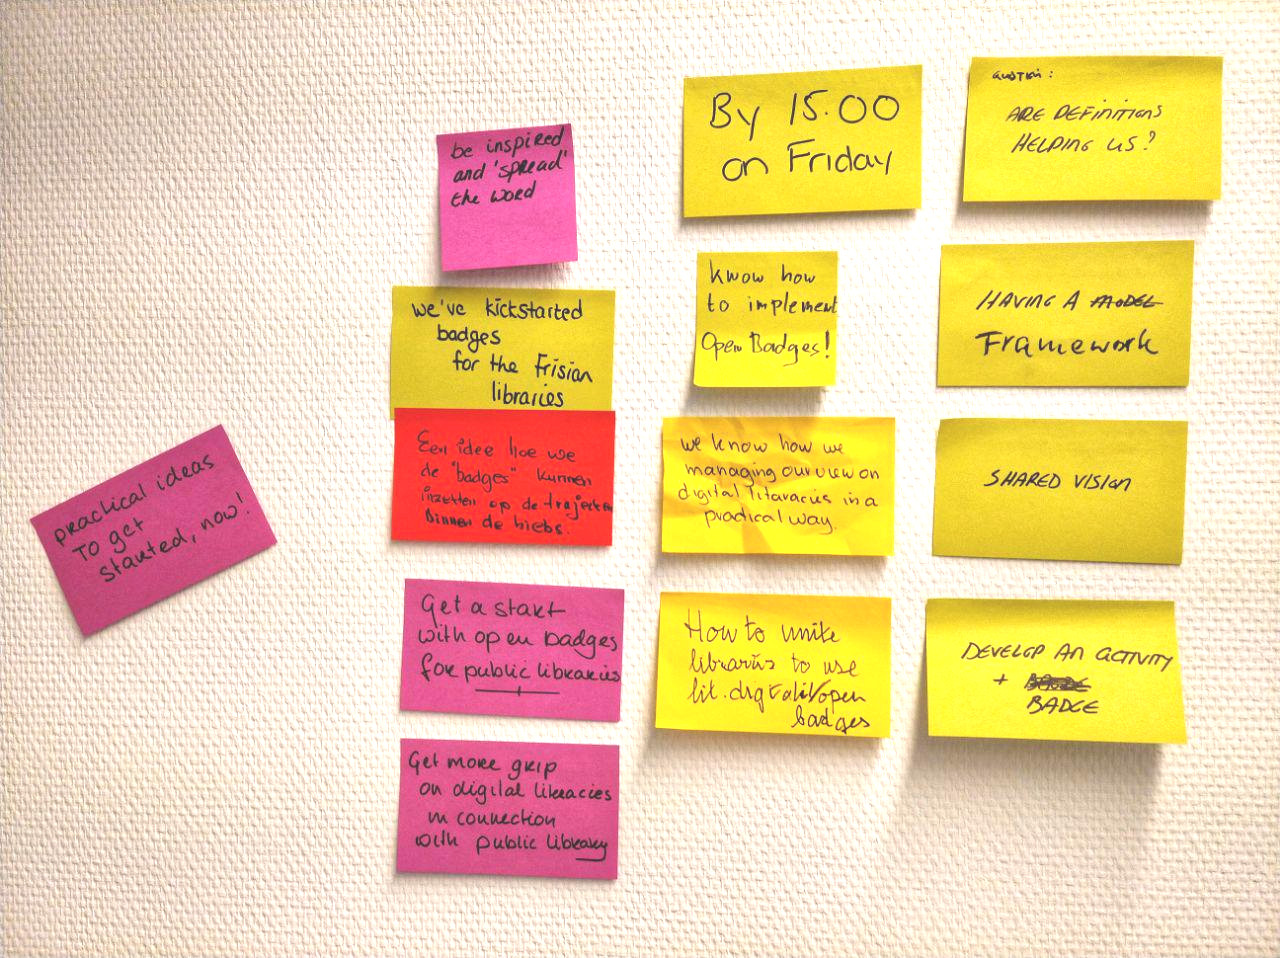 practical ideas
To get
started, now!
be inspired
and 'spread'
the word
we've kickstarted
badges
for the Frisian
libraries
Een idee hoe we
de "badges" kunnen
inzetten op de trajecten
binnen de biebs.
Get a start
with open badges
for public libraries
Get more grip
on digital literacies
in connection
with public library
By 15.00
on Friday
know how
to implement
Open Badges!
we know how we
managing our view on
digital litaracies in a
practical way.
How to unite
libraries to use
lit. digital/open
badges
QUESTION:
ARE DEFINITIONS
HELPING US?
HAVING A MODEL
Framework
SHARED VISION
DEVELOP AN ACTIVITY
+
BADGE